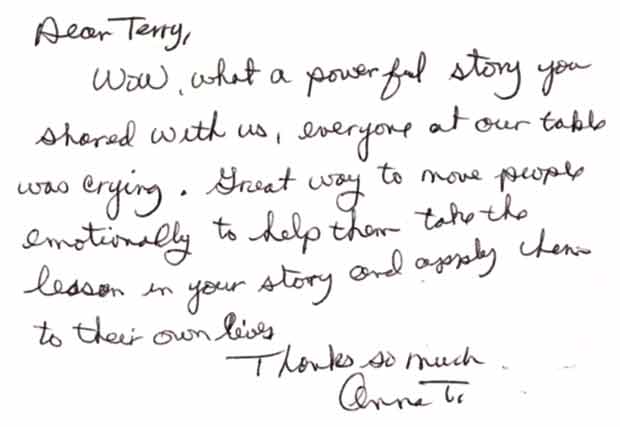 Dear Terry,
Wow, what a powerful story you
shared with us, everyone at our table
was crying. Great way to move people
emotionally to help them take the
lesson in your story and apply them
to their own lives
Thanks so much.
Anna T.